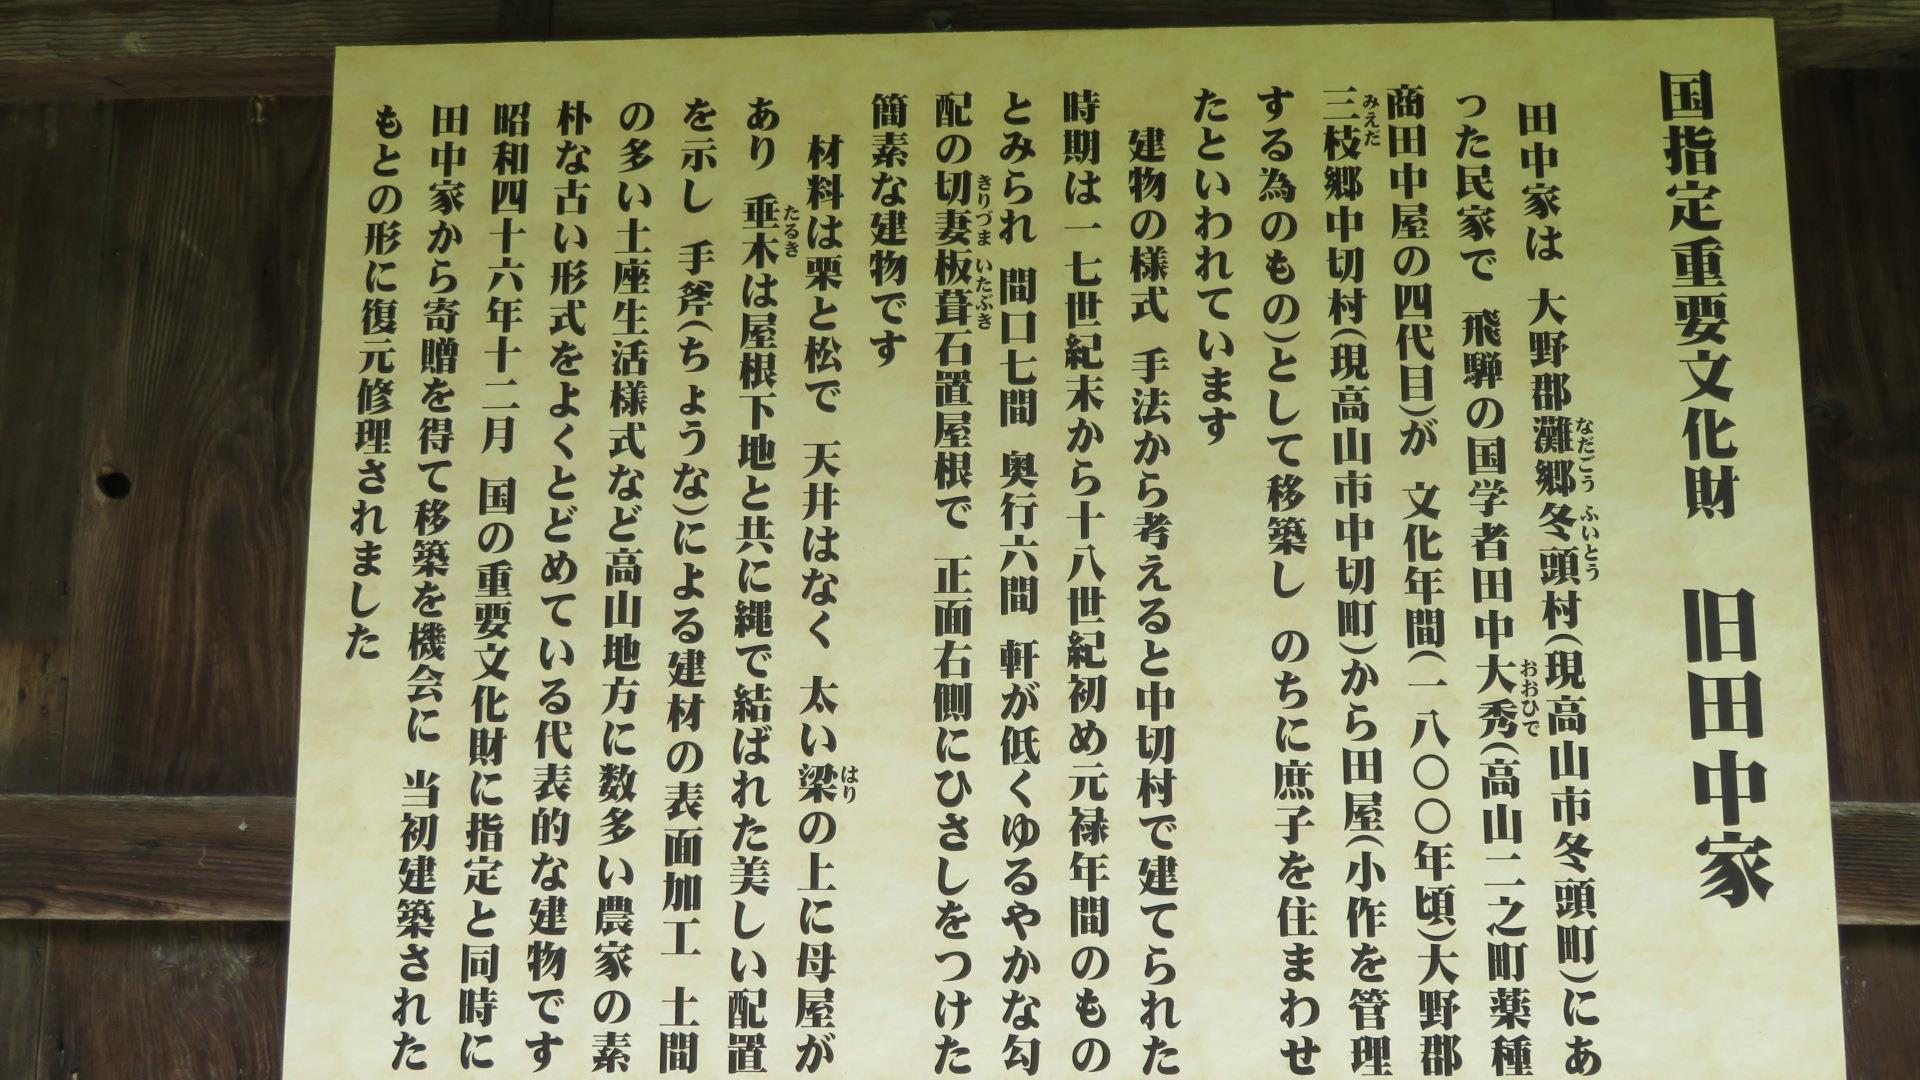 国指定重要文化財 旧田中家
田中家は 大野郡灘郷冬頭村(現高山市冬頭町)にあ
った民家で 飛騨の国学者田中大秀(高山二之町薬種
商田中屋の四代目)が 文化年間(一八〇〇年頃)大野郡
三枝郷中切村(現高山市中切町)から田屋(小作を管理
する為のもの)として移築し のちに庶子を住まわせ
たといわれています
建物の様式 手法から考えると中切村で建てられた
時期は一七世紀末から十八世紀初め元禄年間のもの
とみられ 間口七間 奥行六間 軒が低くゆるやかな勾
配の切妻板葺石置屋根で 正面右側にひさしをつけた
簡素な建物です
材料は栗と松で 天井はなく 太い梁の上に母屋が
あり 垂木は屋根下地と共に縄で結ばれた美しい配置
を示し 手斧(ちょうな)による建材の表面加工 土間
の多い土座生活様式など高山地方に数多い農家の素
朴な古い形式をよくとどめている代表的な建物です
昭和四十六年十二月 国の重要文化財に指定と同時に
田中家から寄贈を得て移築を機会に 当初建築された
もとの形に復元修理されました